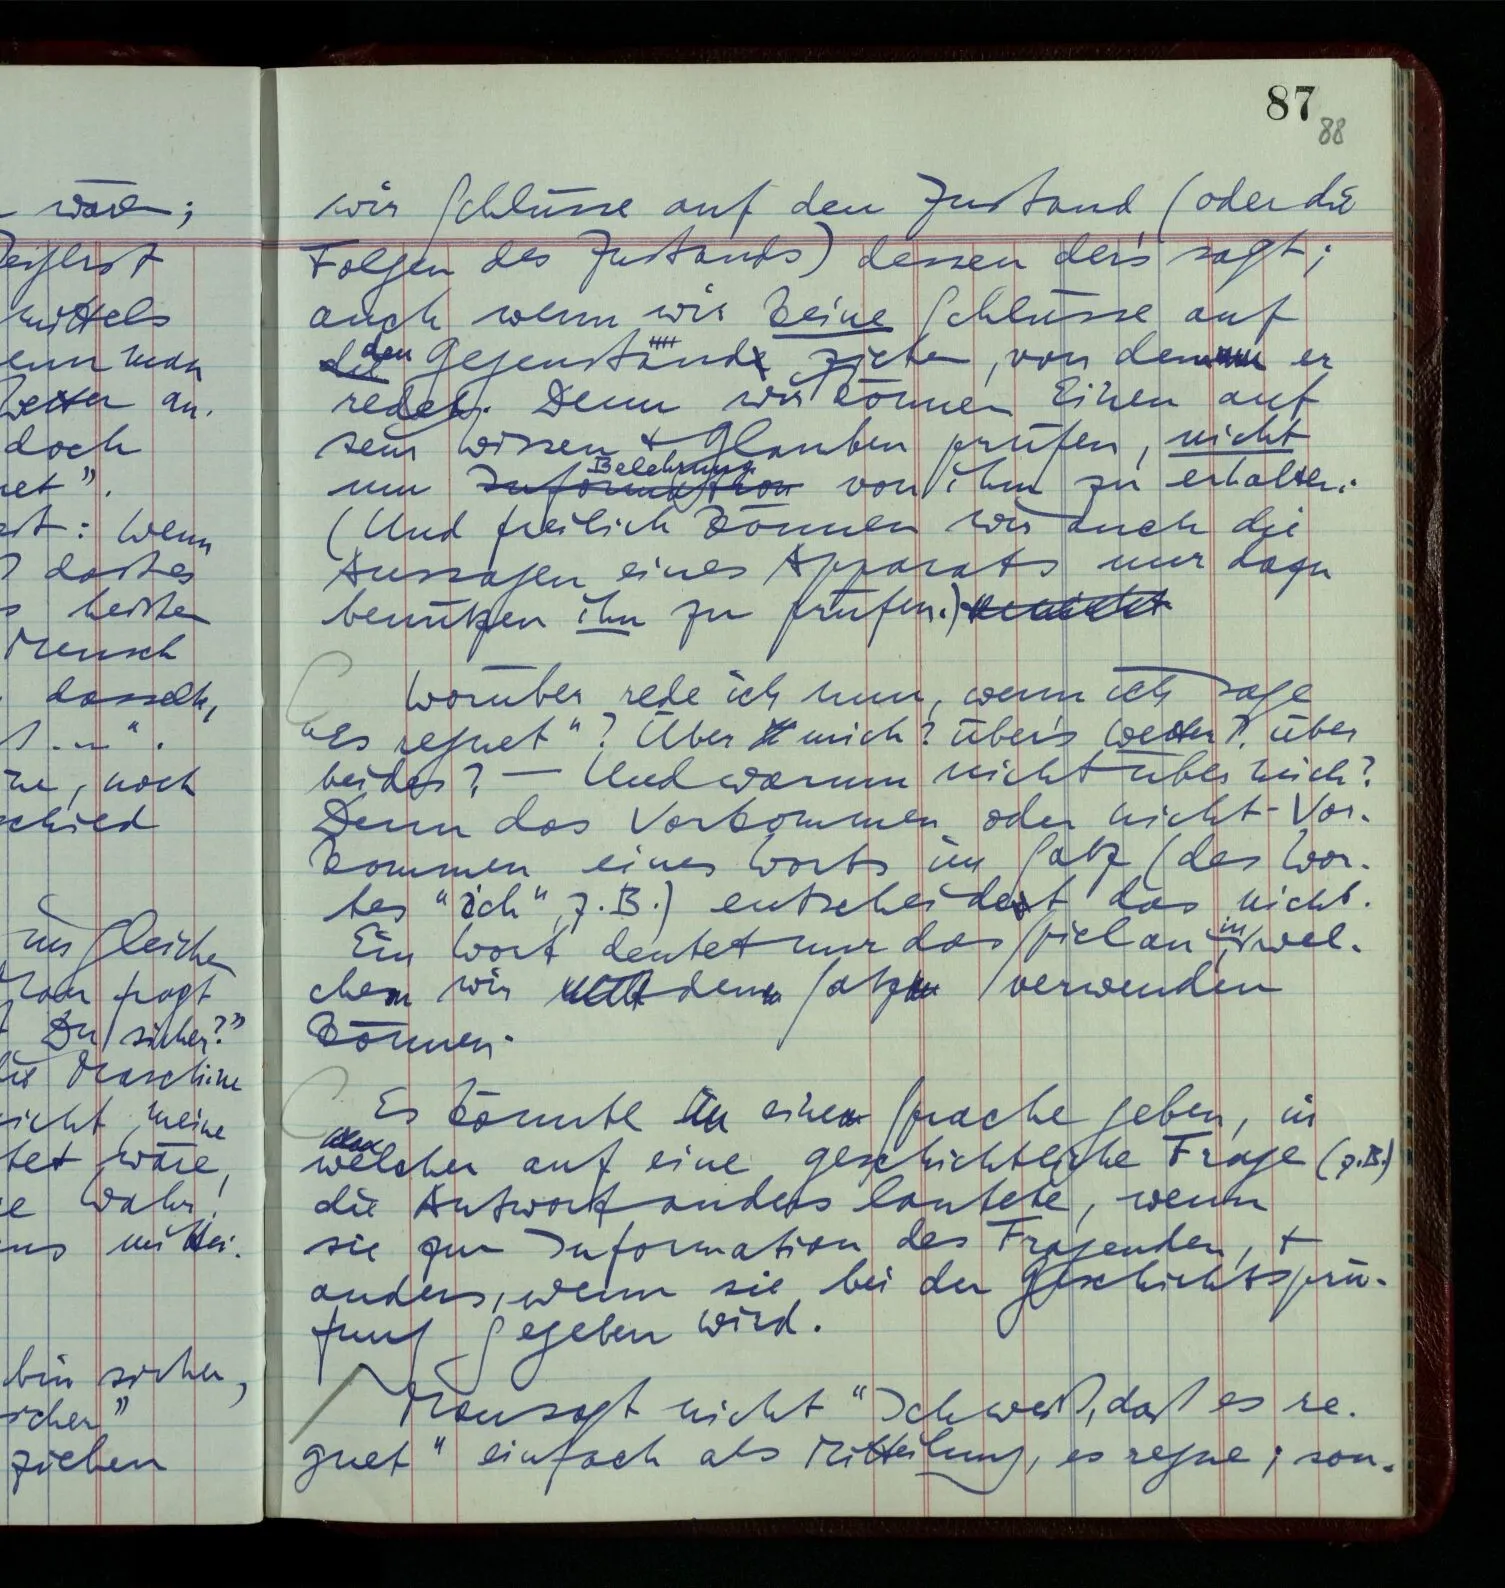 87
88
wäre;
mittels
wenn man
Wetter an.
doch
net".
: Wenn
daßes
heißen
Mensch
dasselbe,
noch
schied
im gleichen
Man fragt
Du sicher?"
die Maschine
nicht meine
tet wäre,
wahr!
uns mittei-
bin sicher,
sicher"
ziehen
wir Schlüsse auf den Zustand (oder die
Folgen des Zustands) dessen der's sagt;
auch wenn wir keine Schlüsse auf
die den Gegenstand ziehen, von dem er
redet. Denn wir können Einen auf
sein Wissen + Glauben prüfen, nicht
Belehrung
um Information von ihm zu erhalten.
(Und freilich können wir auch die
Aussagen eines Apparats nur dazu
benützen ihn zu prüfen.)
Worüber rede ich nun, wenn ich sage
"Es regnet"? Über mich? über's Wetter?, über
beides? — Und warum nicht über mich?
Denn das Vorkommen oder nicht-Vor-
kommen eines Worts im Satz (des Wor-
tes "ich", z.B.) entscheidet das nicht.
Ein Wort deutet nur das Spiel an in wel-
chem wir den Satz verwenden
können.
Es könnte eine Sprache geben, in
welcher auf eine geschichtliche Frage (z.B.)
die Antwort anders lautete, wenn
sie zur Information des Fragenden, +
anders, wenn sie bei der Geschichtsprü-
fung gegeben wird.
Man sagt nicht "Ich weiß, daß es re-
gnet" einfach als Mitteilung, es regne; son-